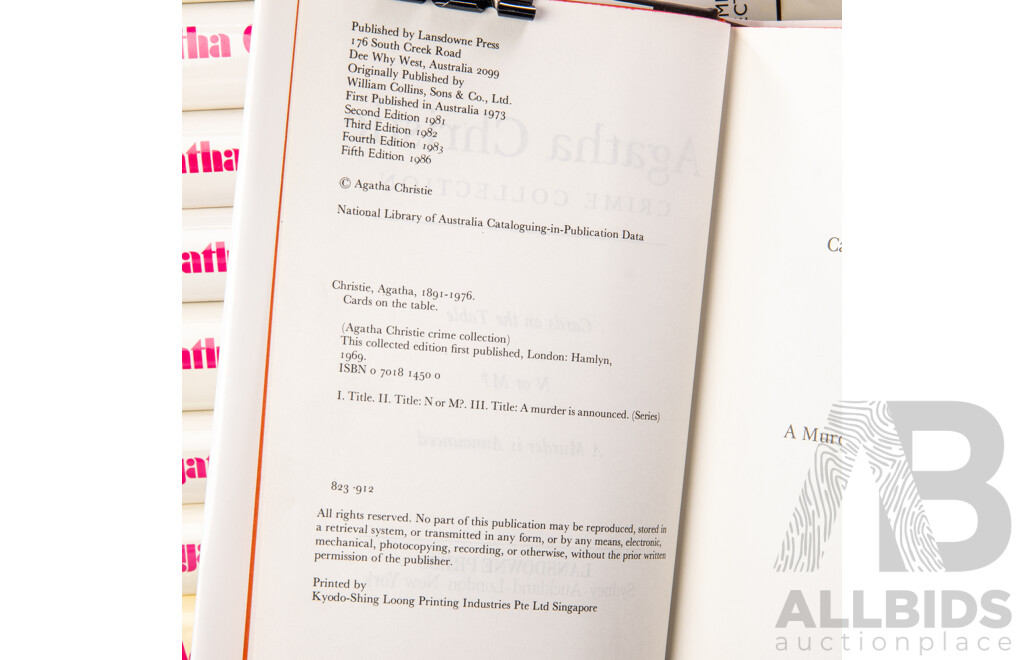 Published by Lansdowne Press
176 South Creek Road
Dee Why West, Australia 2099
Originally Published by
William Collins, Sons & Co., Ltd.
First Published in Australia 1973
Second Edition 1981
Third Edition 1982
Fourth Edition 1983
Fifth Edition 1986
© Agatha Christie
National Library of Australia Cataloguing-in-Publication Data
Christie, Agatha, 1891-1976.
Cards on the table.
(Agatha Christie crime collection)
This collected edition first published, London: Hamlyn,
1969.
ISBN 0 7018 1450 0
I. Title. II. Title: N or M?. III. Title: A murder is announced. (Series)
823 .912
All rights reserved. No part of this publication may be reproduced, stored in
a retrieval system, or transmitted in any form, or by any means, electronic,
mechanical, photocopying, recording, or otherwise, without the prior written
permission of the publisher.
Printed by
Kyodo-Shing Loong Printing Industries Pte Ltd Singapore
Agatha Christie
CRIME COLLECTION
Cards on the Table
N or M?
A Murder is Announced
LANSDOWNE PRESS
Sydney Auckland London New York
A
AB
ALLBIDS
auctionplace